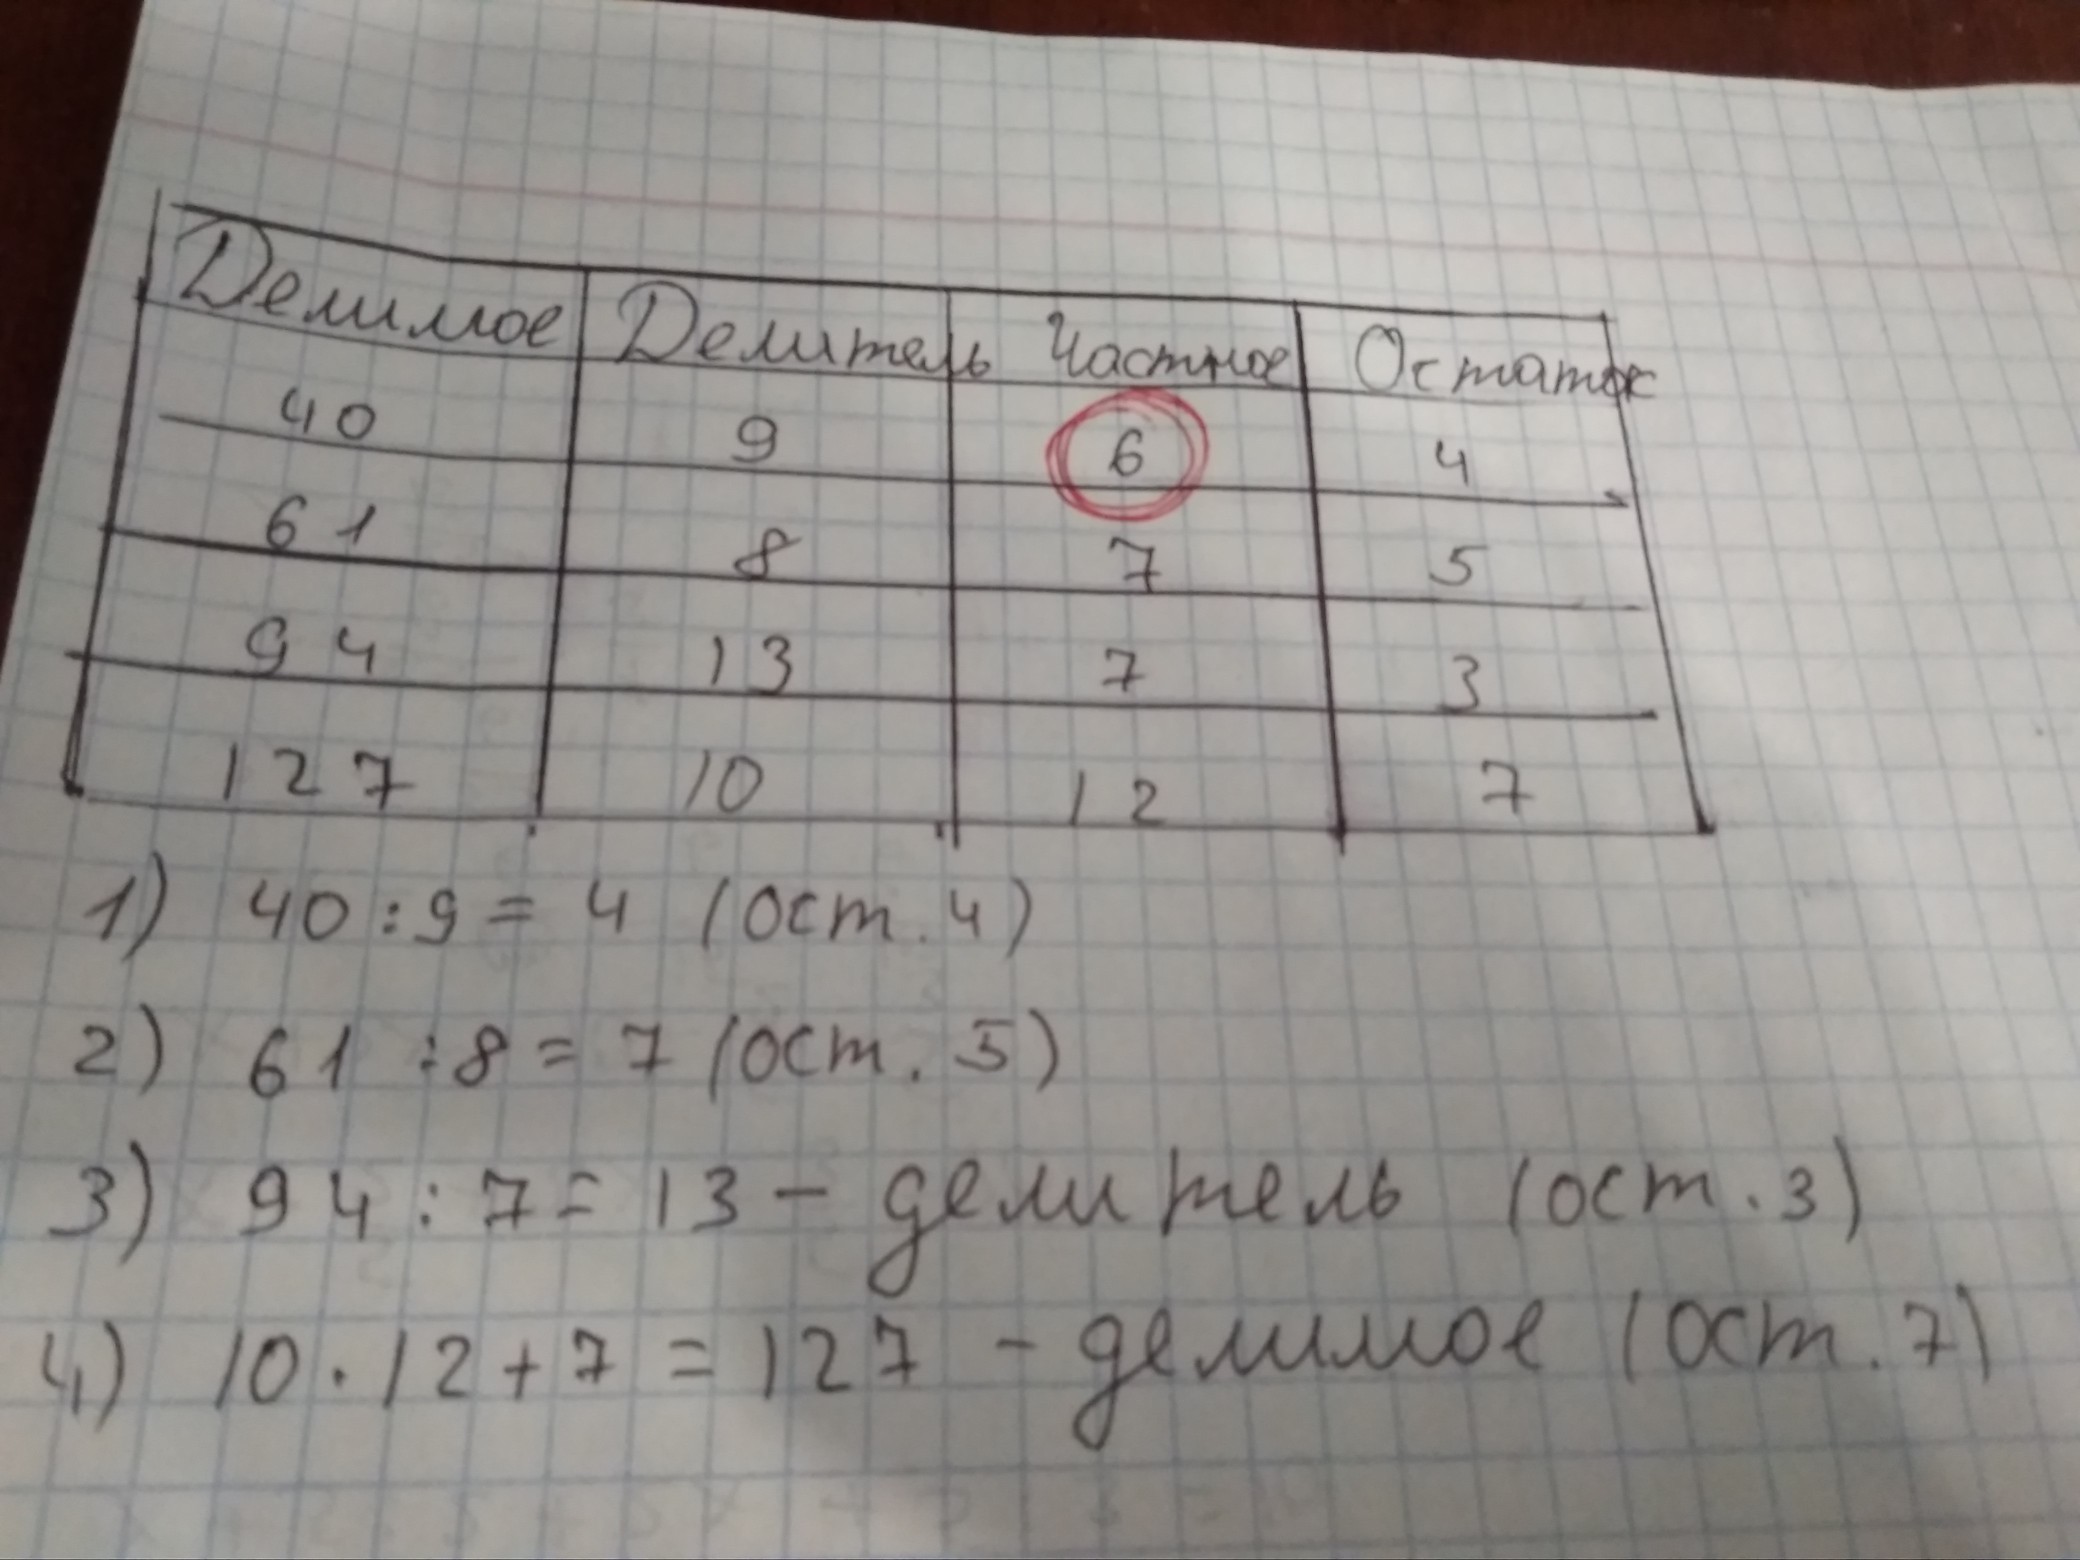 Делимое Делитель Частное Остаток
40 9 6 4
61 8 7 5
94 13 7 3
127 10 12 7
1) 40:9=4 (ост. 4)
2) 61:8=7 (ост. 5)
3) 94:7=13 - делитель (ост. 3)
4) 10·12+7=127 - делимое (ост. 7)